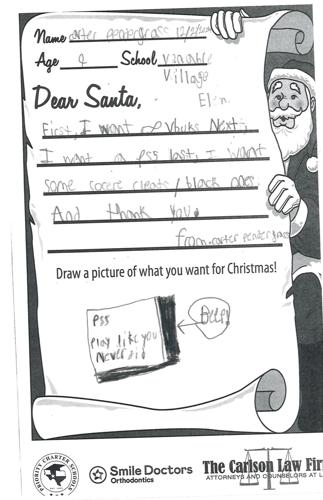 Name carter pentergrass 12/2/
Age 9 School Venable
Village
Elem.
Dear Santa,
First, I want ∞ Vbuks Next,
I want a ps5 last, I want
some cocere cleats / black ones
And thank you.
from: carter pentergrass
Draw a picture of what you want for Christmas!
PS5
Play like you
Never did
Beep!
PRIORITY CHARTER SCHOOLS
Smile Doctors
Orthodontics
The Carlson Law Fir
ATTORNEYS AND COUNSELORS AT L